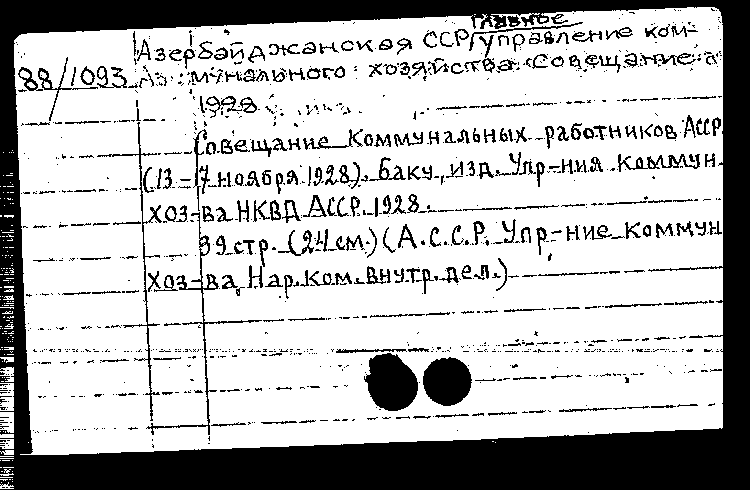 Главное
Азербайджанская ССР/управление ком-
88/1093 Аз мунального хозяйства. Совещание
1928
Совещание коммунальных работников АССР
(13-17 ноября 1928). Баку, изд. Упр-ния коммун.
хоз-ва НКВД АССР. 1928.
39 стр. (24 см.) (А.С.С.Р. Упр-ние коммун
хоз-ва, Нар. ком. внутр. дел.)